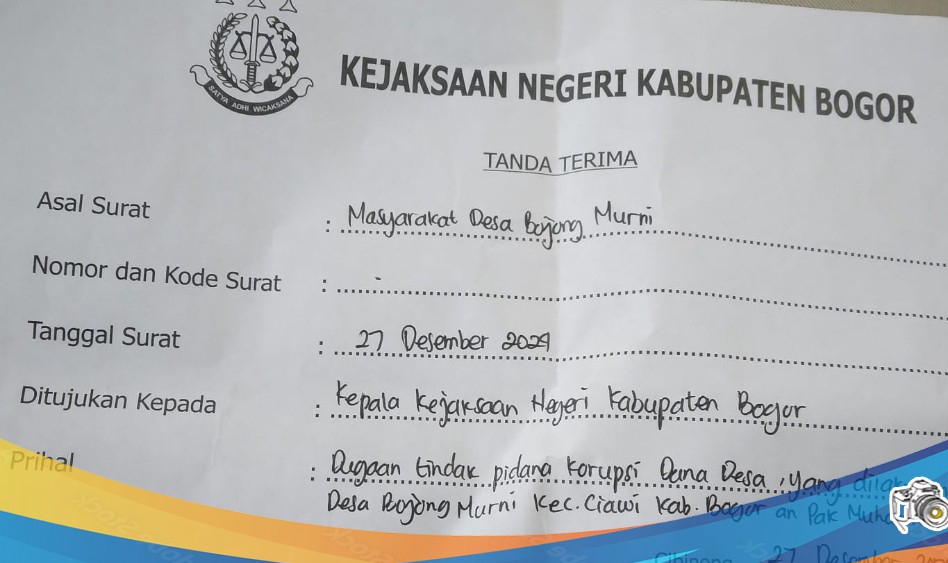 SATYA ADHI WICAKSANA
KEJAKSAAN NEGERI KABUPATEN BOGOR
TANDA TERIMA
Asal Surat : Masyarakat Desa Bojong Murni
Nomor dan Kode Surat : -
Tanggal Surat : 27 Desember 2024
Ditujukan Kepada : Kepala Kejaksaan Negeri Kabupaten Bogor
Prihal : Dugaan tindak pidana korupsi Dana Desa, yang
Desa Bojong Murni Kec. Ciawi Kab. Bogor an Pak
Cibinong 27 Desember